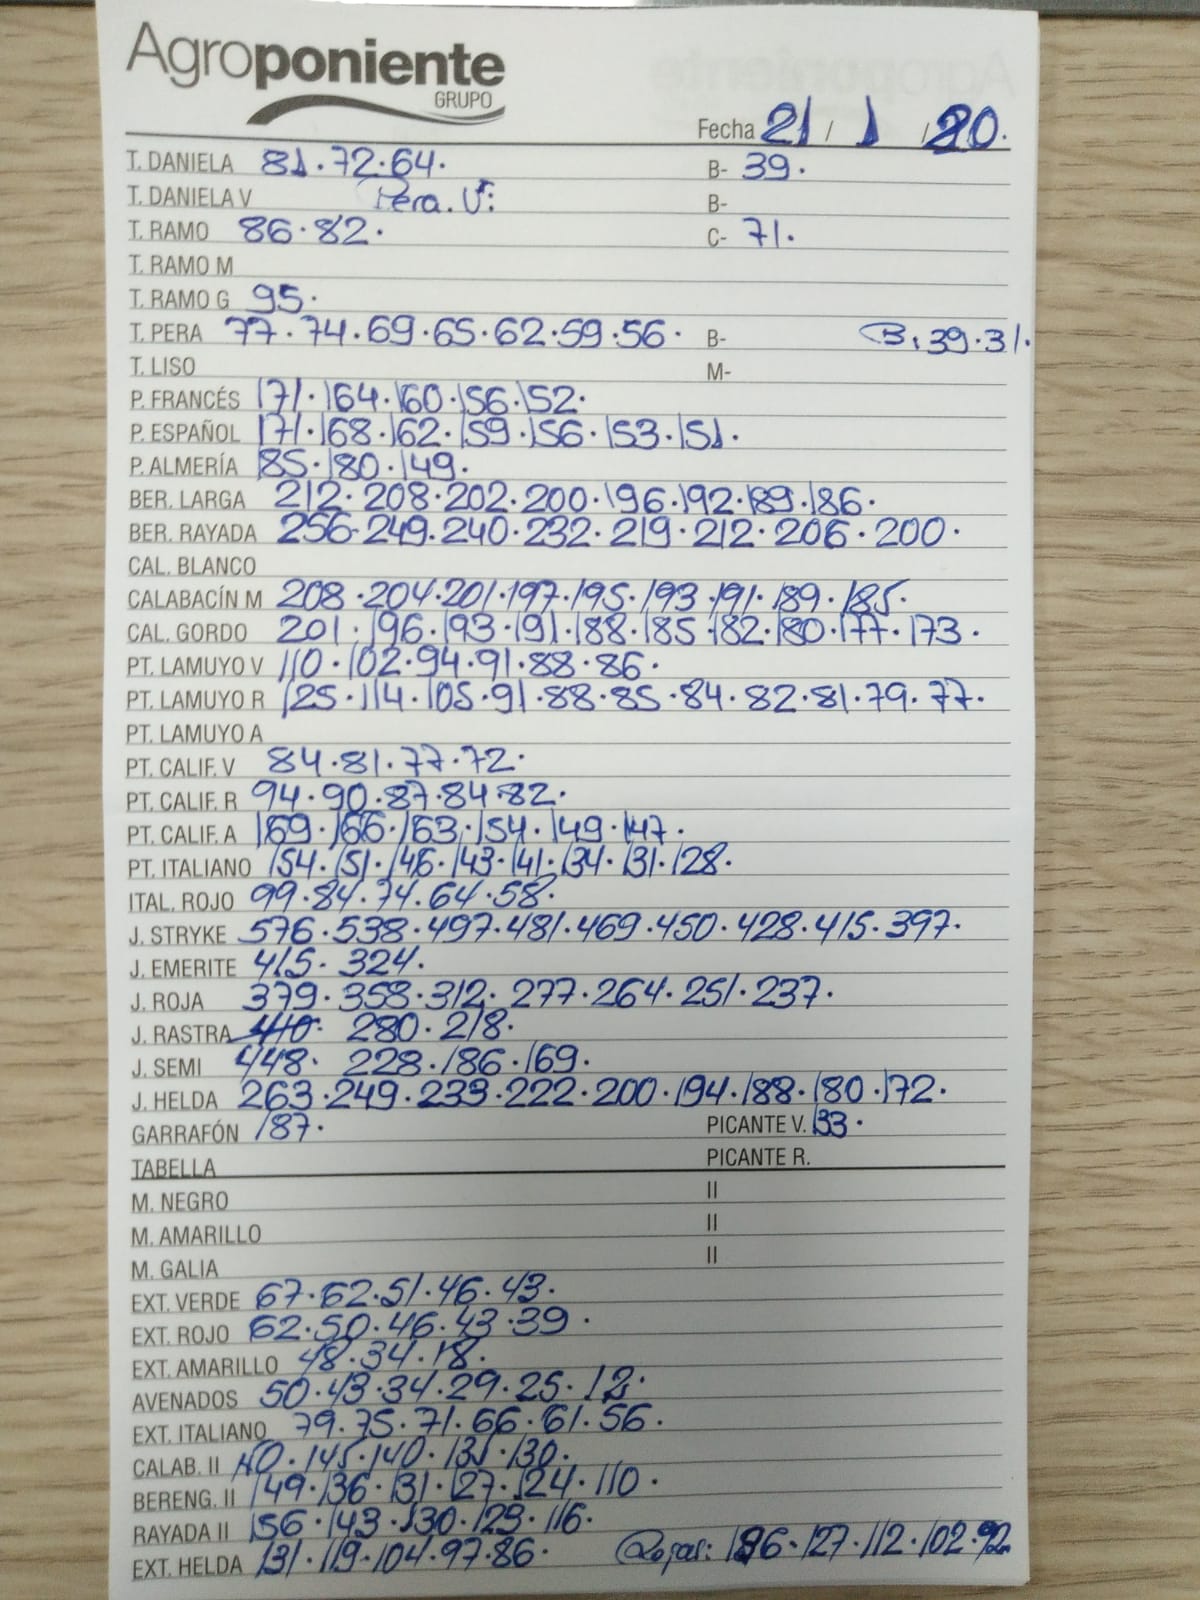 Agroponiente
GRUPO
Fecha 21 / 1 / 20.
T. DANIELA 81.72.64. B- 39.
T. DANIELA V Pera. V: B-
T. RAMO 86.82. C- 71.
T. RAMO M
T. RAMO G 95.
T. PERA 77.74.69.65.62.59.56. B- B:39.31.
T. LISO M-
P. FRANCÉS 171.164.160.156.152.
P. ESPAÑOL 171.168.162.159.156.153.151.
P. ALMERÍA 185.180.149.
BER. LARGA 212.208.202.200.196.192.189.186.
BER. RAYADA 256.249.240.232.219.212.206.200.
CAL. BLANCO
CALABACÍN M 208.204.201.197.195.193.191.189.185.
CAL. GORDO 201.196.193.191.188.185.182.180.177.173.
PT. LAMUYO V 110.102.94.91.88.86.
PT. LAMUYO R 125.114.105.91.88.85.84.82.81.79.77.
PT. LAMUYO A
PT. CALIF. V 84.81.77.72.
PT. CALIF. R 94.90.87.84.82.
PT. CALIF. A 169.166.163.154.149.147.
PT. ITALIANO 154.151.146.143.141.134.131.128.
ITAL. ROJO 99.84.74.64.58.
J. STRYKE 576.538.497.481.469.450.428.415.397.
J. EMERITE 415.324.
J. ROJA 379.358.312.277.264.251.237.
J. RASTRA 280.218.
J. SEMI 448. 228.186.169.
J. HELDA 263.249.239.222.200.194.188.180.172.
GARRAFÓN 187. PICANTE V. 133.
TABELLA PICANTE R.
M. NEGRO II
M. AMARILLO II
M. GALIA II
EXT. VERDE 67.62.51.46.43.
EXT. ROJO 62.50.46.43.39.
EXT. AMARILLO 48.34.18.
AVENADOS 50.43.34.29.25.12.
EXT. ITALIANO 79.75.71.66.61.56.
CALAB. II 145.140.135.130.
BERENG. II 149.136.131.127.124.110.
RAYADA II 156.143.130.123.116.
EXT. HELDA 131.119.104.97.86. Rojas: 127.112.102.92